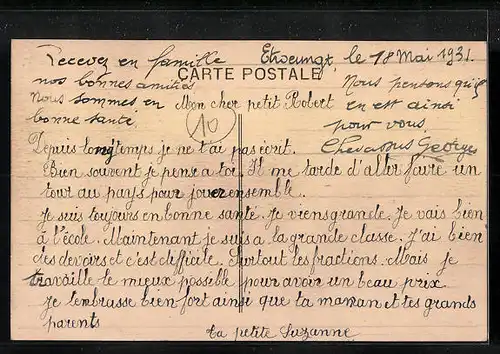 Recevez en famille Etroeungt, le 18 Mai 1931.
CARTE POSTALE
nos bonnes amitiés
Nous sommes en
bonne santé.
Nous pensons qu'il
en est ainsi
pour vous.
Chevassus Georges
10
Mon cher petit Robert
Depuis longtemps je ne t'ai pas écrit.
Bien souvent je pense a toi. Il me tarde d'aller faire un
tour au pays pour jouer ensemble.
Je suis toujours en bonne santé. Je viens grande. Je vais bien
à l'école. Maintenant je suis a la grande classe. J'ai bien
des devoirs et c'est difficile. Surtout les fractions. Mais je
travaille le mieux possible pour avoir un beau prix
Je t'embrasse bien fort ainsi que ta maman et tes grands
parents
ta petite Suzanne